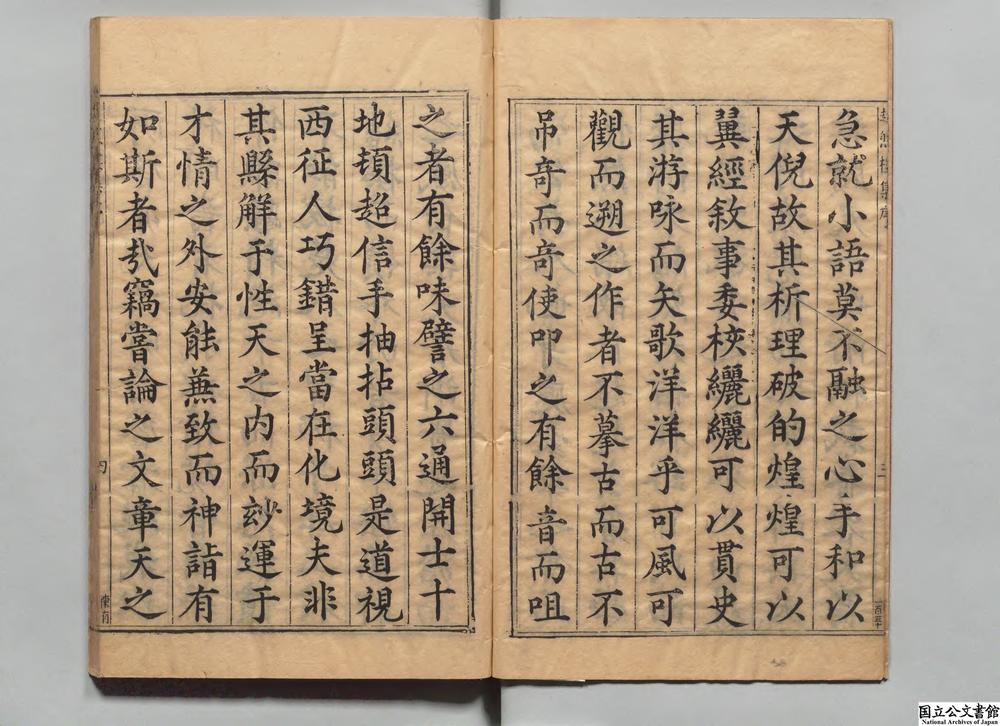 急就小語莫不融之心手和以
天倪故其析理破的煌煌可以
翼經敘事委校纚纚可以貫史
其游咏而矢歌洋洋乎可風可
觀而遡之作者不摹古而古不
吊奇而奇使叩之有餘音而咀
之者有餘味譬之六通開士十
地頓超信手抽拈頭頭是道視
西征人巧錯呈當在化境夫非
其縣解于性天之内而玅運于
才情之外安能兼致而神詣有
如斯者㢤竊嘗論之文章天之
国立公文書館
National Archives of Japan